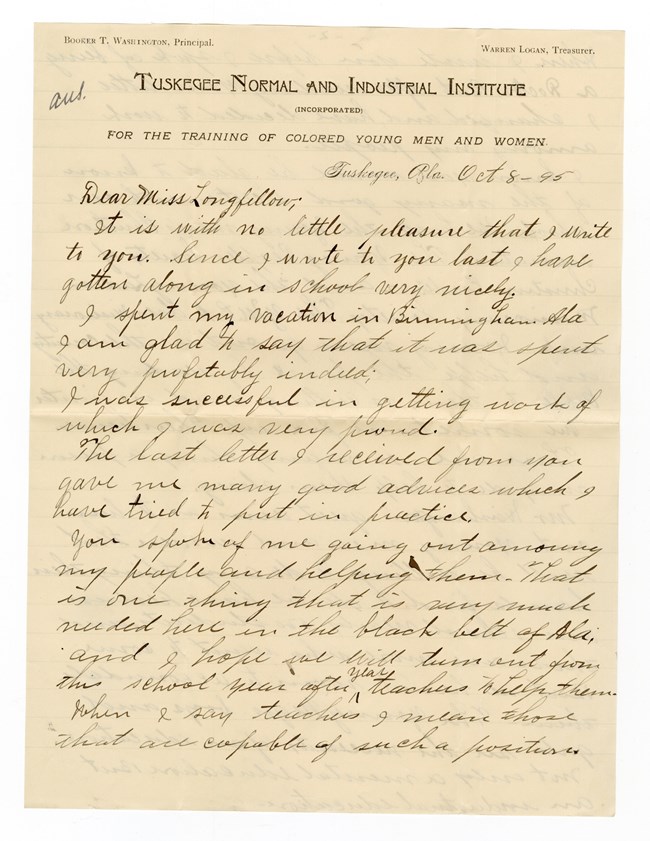 BOOKER T. WASHINGTON, Principal.
WARREN LOGAN, Treasurer.
TUSKEGEE NORMAL AND INDUSTRIAL INSTITUTE
(INCORPORATED)
ans.
FOR THE TRAINING OF COLORED YOUNG MEN AND WOMEN.
Tuskegee, Ala. Oct 8-95
Dear Miss Longfellow;
It is with no little pleasure that I write
to you. Since I wrote to you last I have
gotten along in school very nicely.
I spent my vacation in Birmingham Ala
I am glad to say that it was spent
very profitably indeed;
I was successful in getting work of
which I was very proud.
The last letter I received from you
gave me many good advices which I
have tried to put in practice.
You spoke of me going out amoung
my people and helping them. That
is one thing that is very much
needed here in the black belt of Ala,
and I hope we will turn out from
this school year after year teachers to help them.
When I say teachers I mean those
that are capable of such a position.